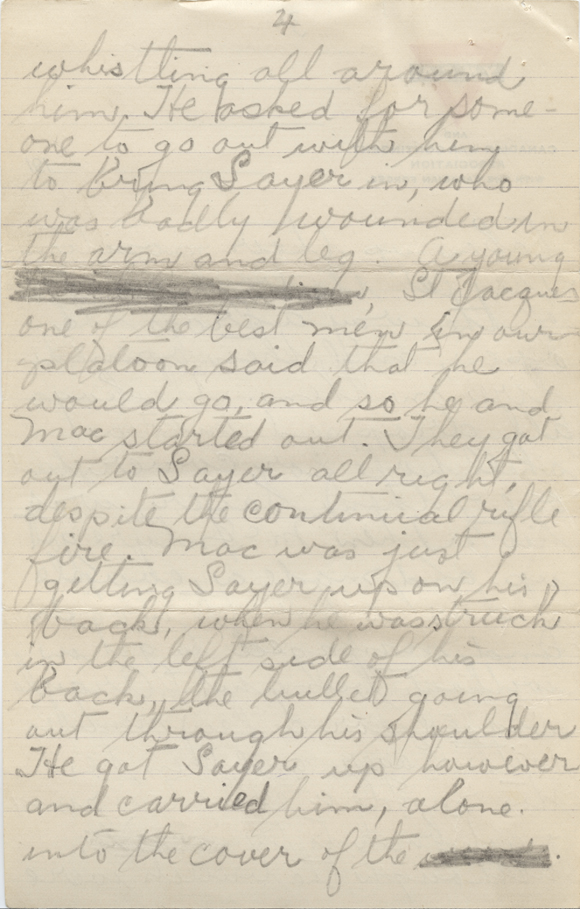 4
whistling all around
him. He asked for some-
one to go out with him
to bring Sayer in, who
was badly wounded in
the arm and leg. A young
St Jacques
one of the best men in our
platoon said that he
would go, and so he and
Mac started out. They got
out to Sayer all right,
despite the continual rifle
fire. Mac was just
getting Sayer up on his
back, when he was struck
in the left side of his
back, the bullet going
out through his shoulder
He got Sayer up however
and carried him, alone.
into the cover of the